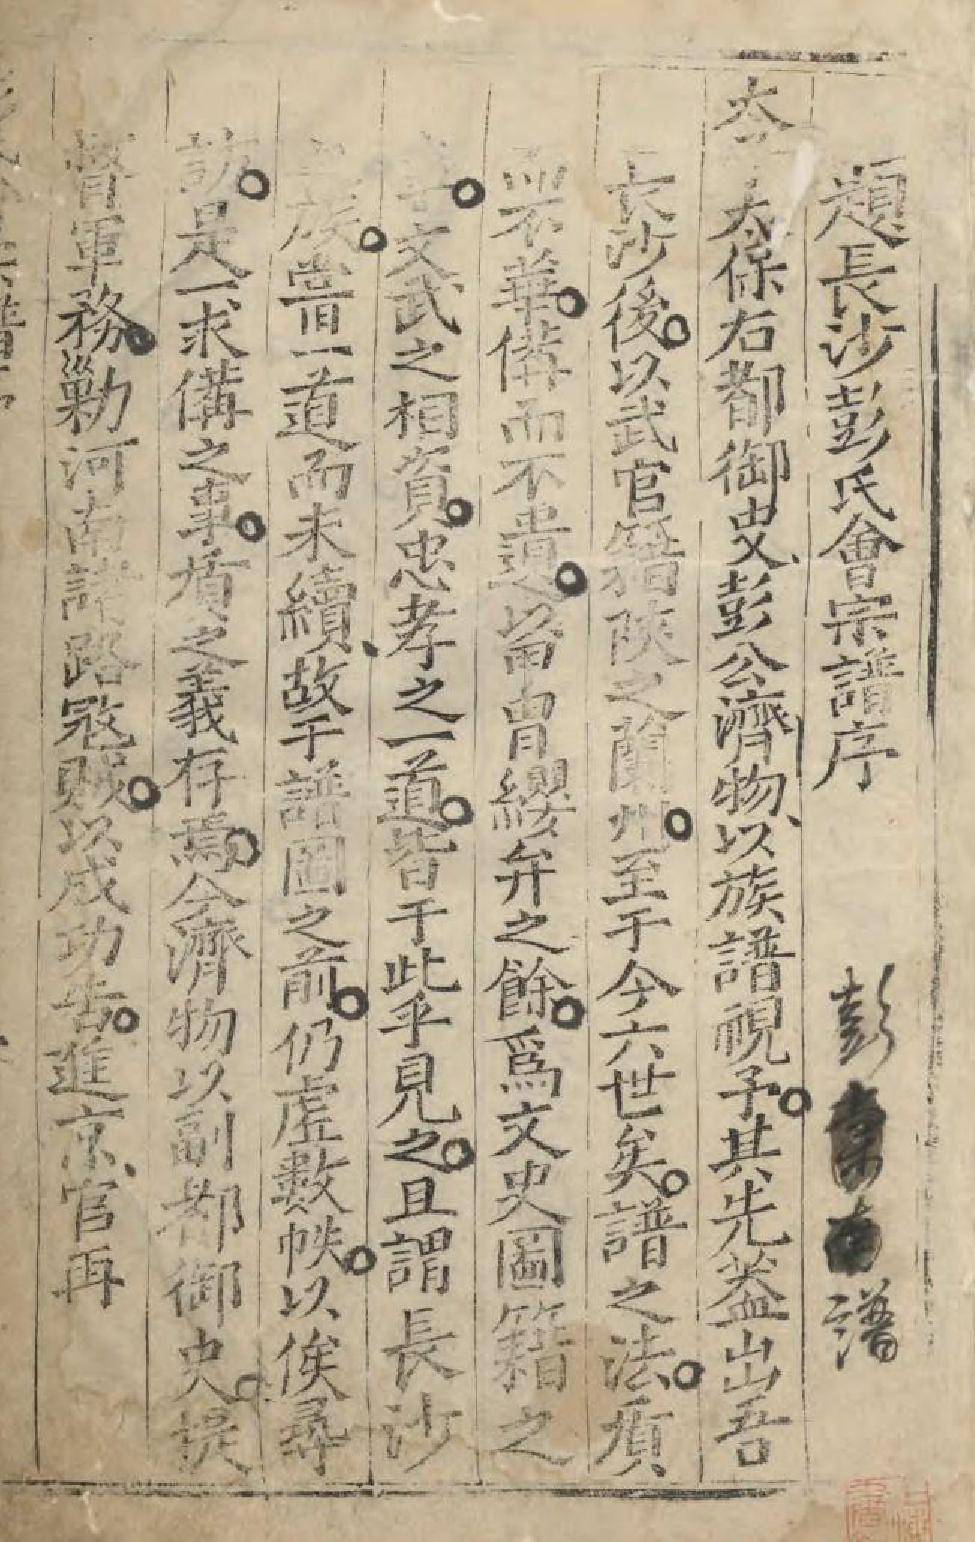 題長沙彭氏會宗譜序
彭 譜
太子太保右都御史彭公濟物以族譜視予其先蓋出吾
長沙後以武官籍陝之蘭州至于今六世矣譜之法質
而不華備而不遺當胄纓弁之餘爲文史圖籍之
文武之相資忠孝之一道皆于此乎見之且謂長沙
族嘗一道而未續故于譜圖之前仍虛數帙以俟尋
訪是一求備之事質之義存焉今濟物以副都御史提
督軍務勦河南諸路寇賊以成功告進京官再